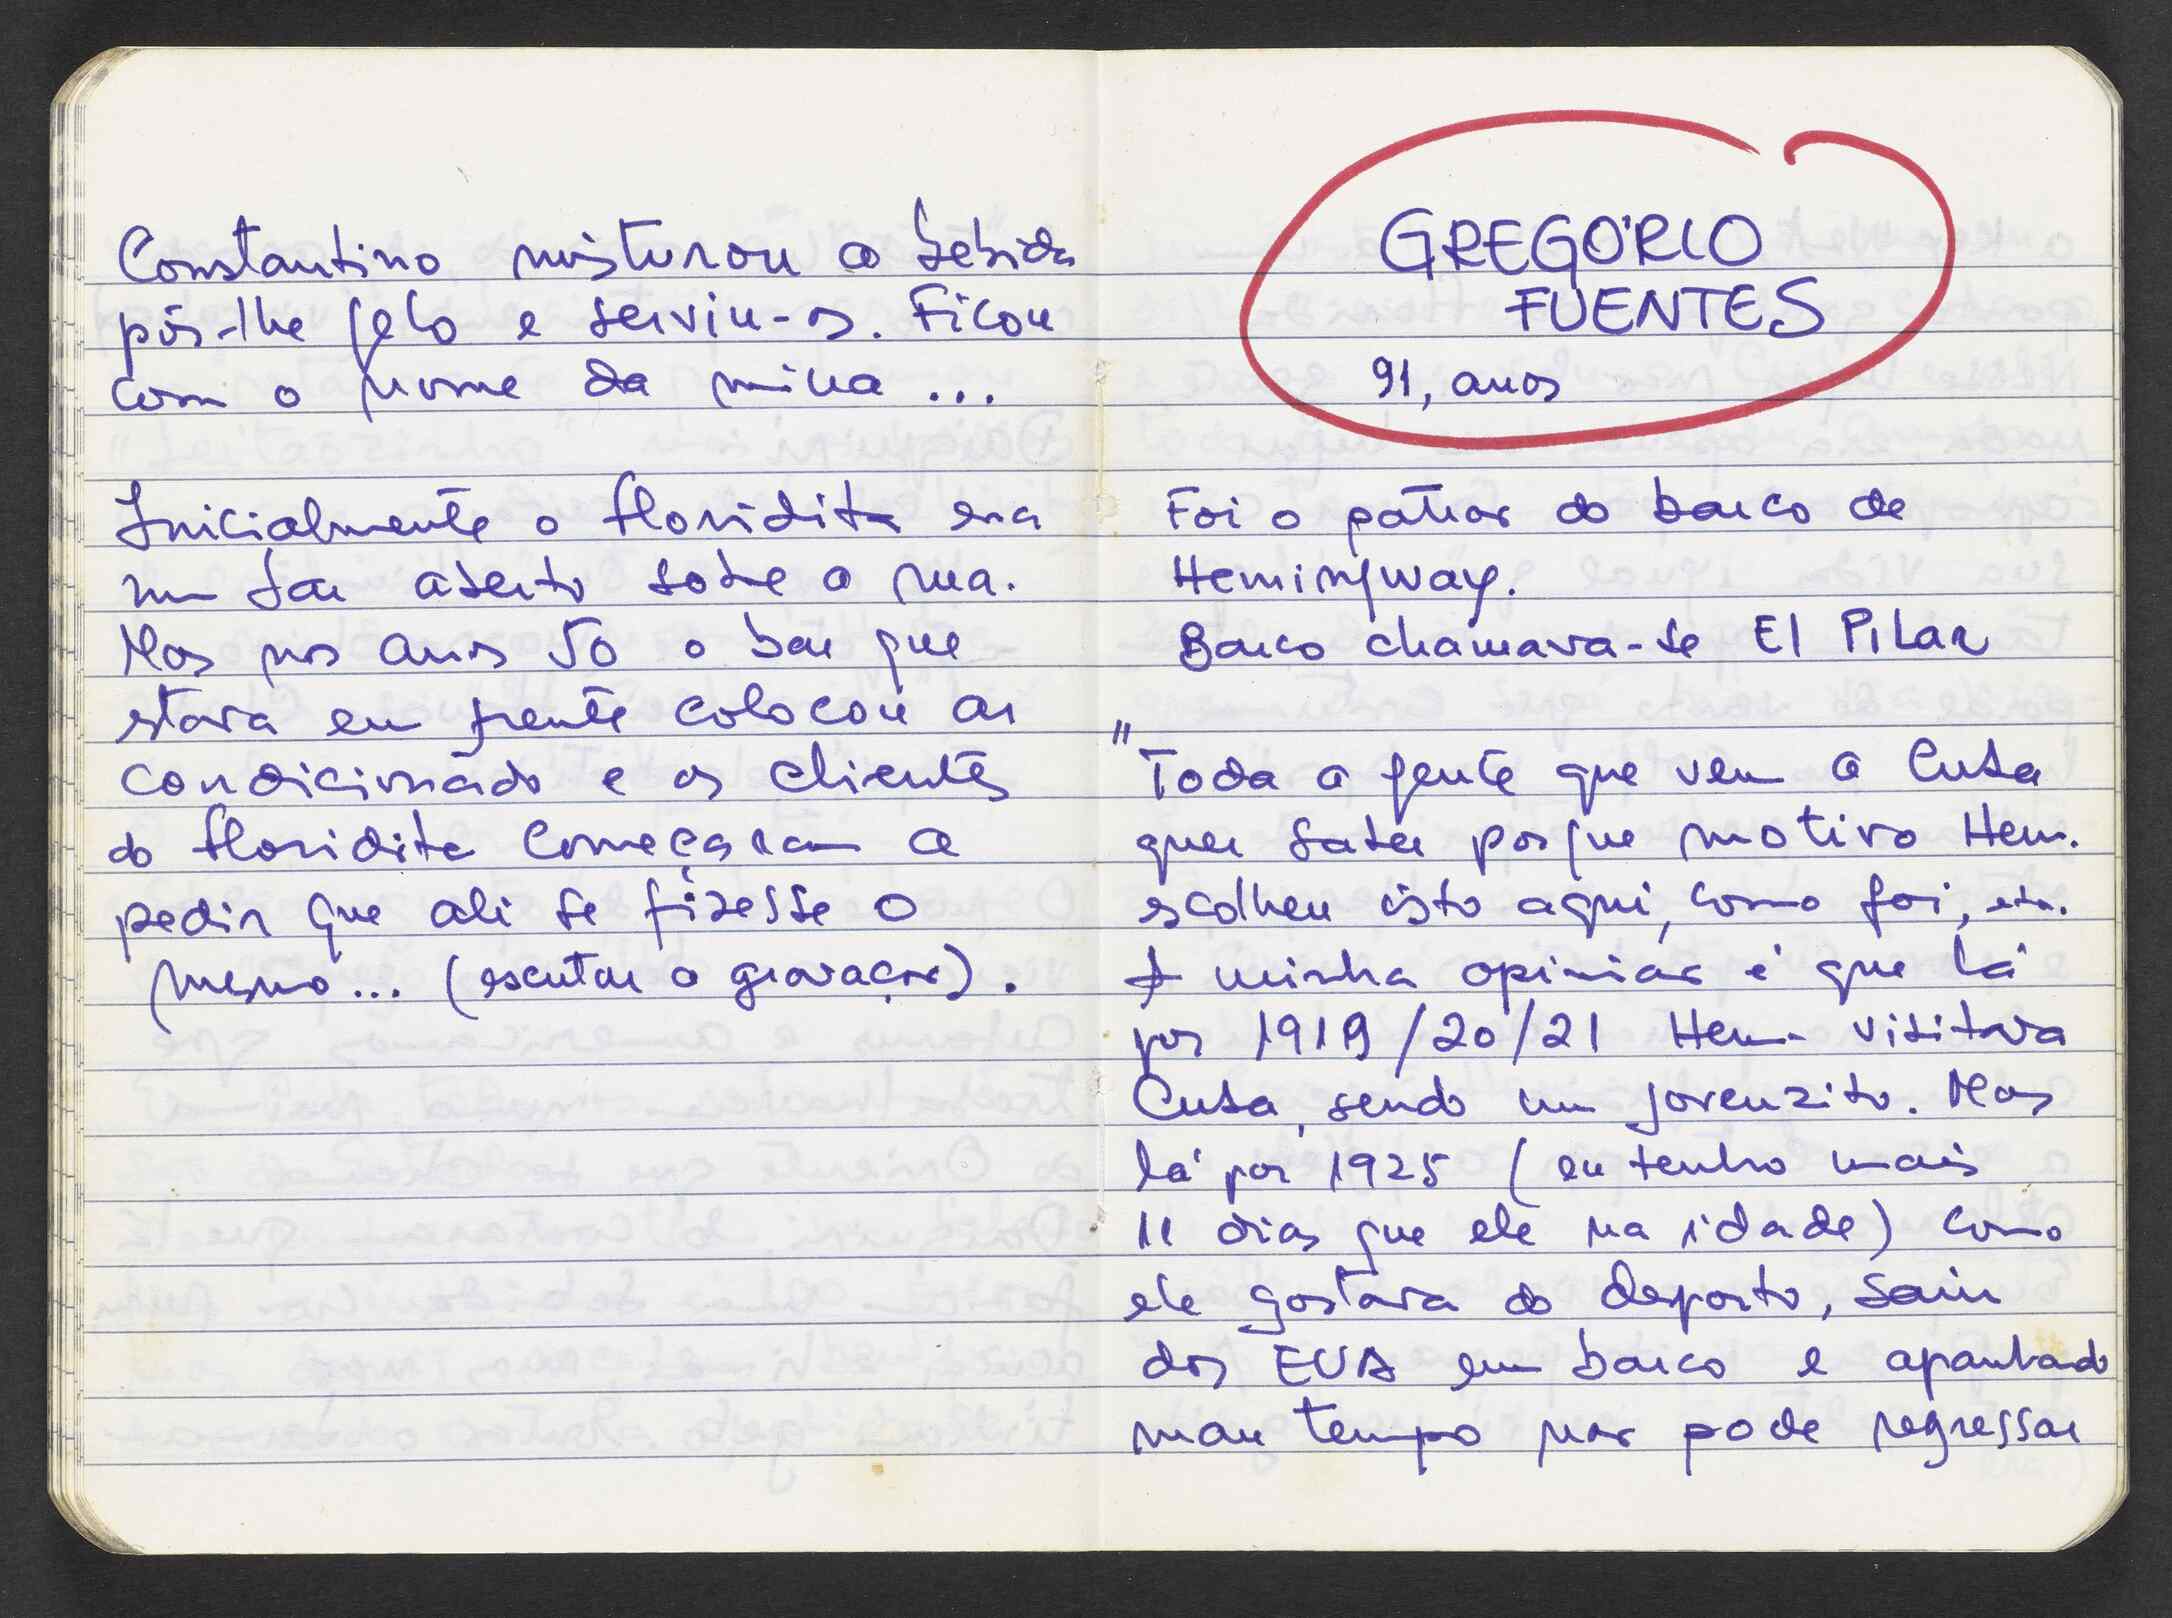 Constantino misturou a bebida
pôs-lhe gelo e serviu-os. Ficou
com o nome da mina ...
Inicialmente o Floridita era
um bar aberto sobre a rua.
Mas nos anos 50 o bar que
estava em frente colocou ar
condicionado e os clientes
do Floridita começaram a
pedir que ali se fizesse o
mesmo... (escutar a gravação).
GREGÓRIO
FUENTES
91, anos
Foi o patrão do barco de
Hemingway.
Barco chamava-se El Pilar
"Toda a gente que vem a Cuba
quer saber porque motivo Hem.
escolheu isto aqui, como foi, etc.
A minha opinião é que lá
por 1919/20/21 Hem. visitava
Cuba, sendo um jovenzito. Mas
lá por 1925 (eu tenho mais
11 dias que ele na idade) como
ele gostava do desporto, saiu
dos EUA em barco e apanhado
mau tempo não pode regressar